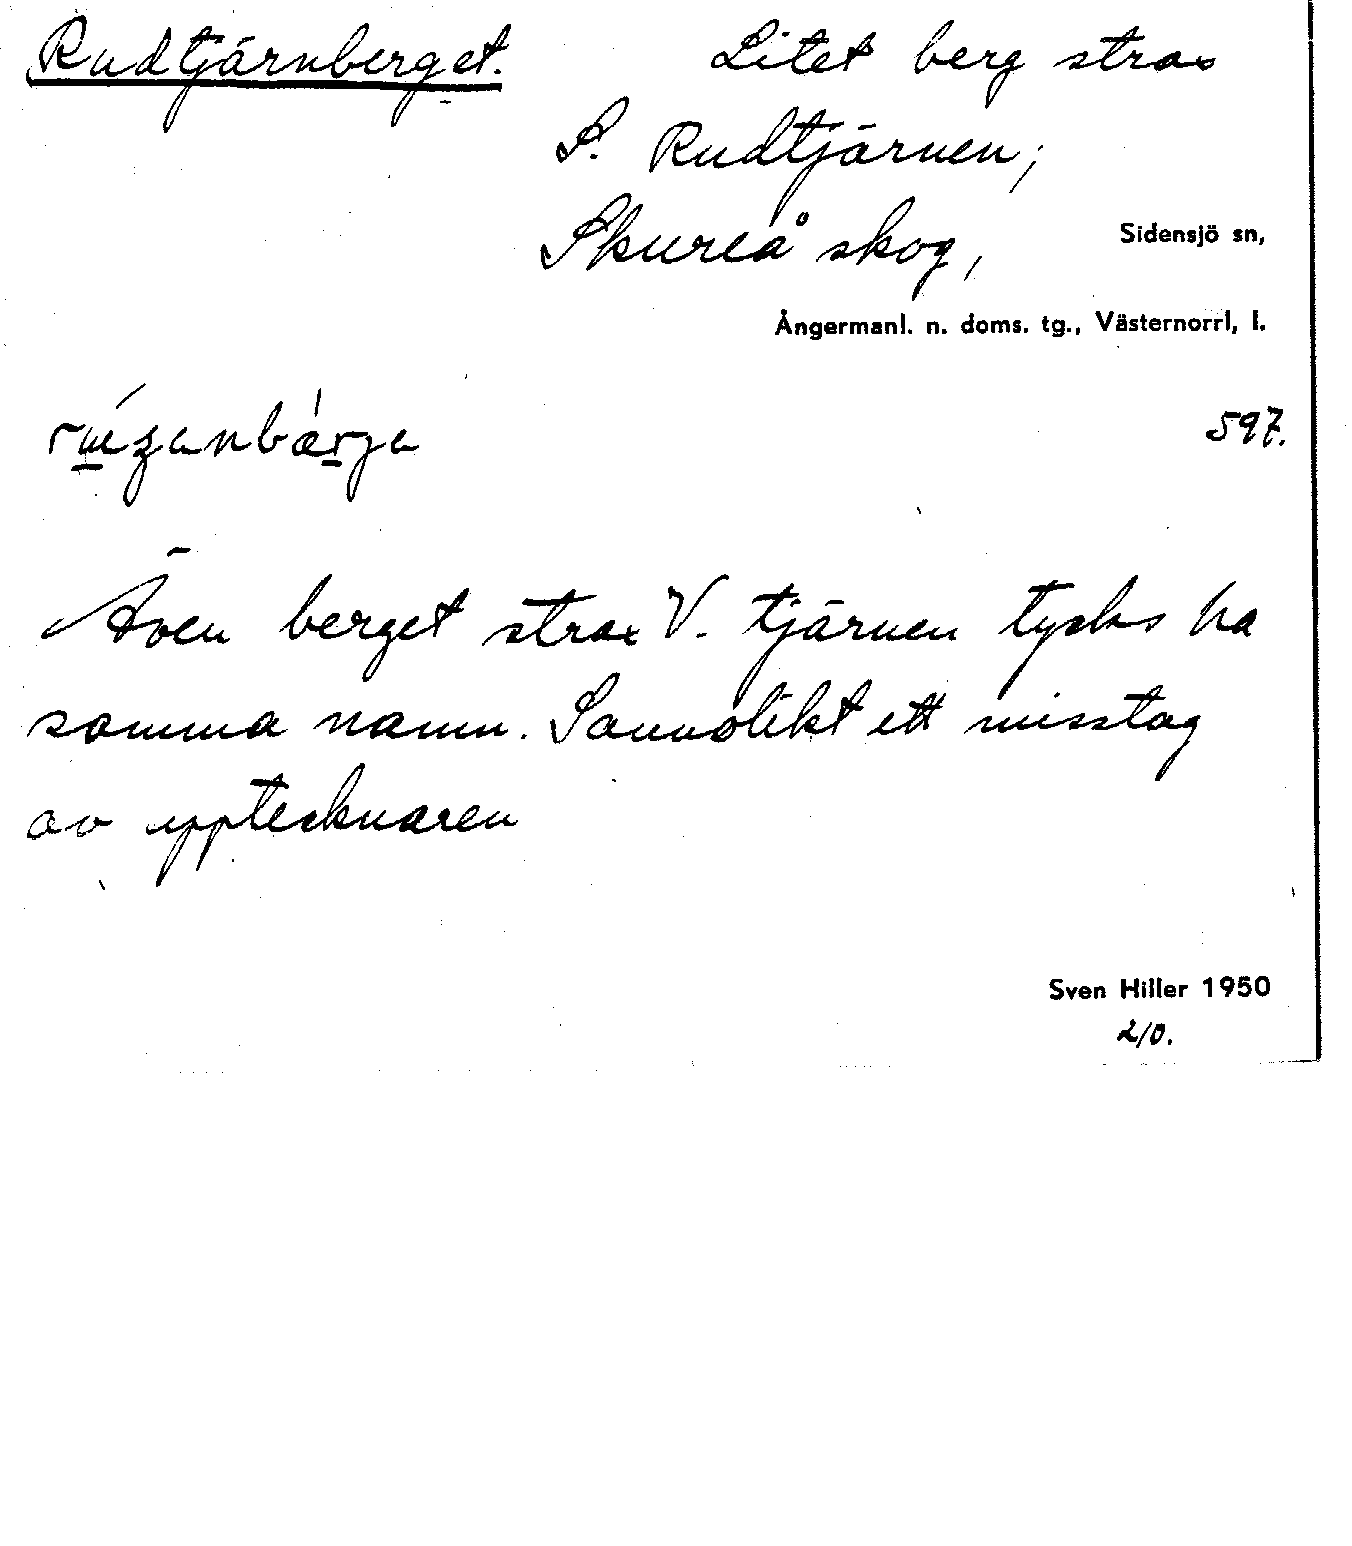 Rudtjärnberget.
Litet berg strax
S. Rudtjärnen;
Skureå skog,
Sidensjö sn,
Ångermanl. n. doms. tg., Västernorrl, l.
597.
Även berget strax V. tjärnen tycks ha
samma namn. Sannolikt ett misstag
av upptecknaren
Sven Hiller 1950